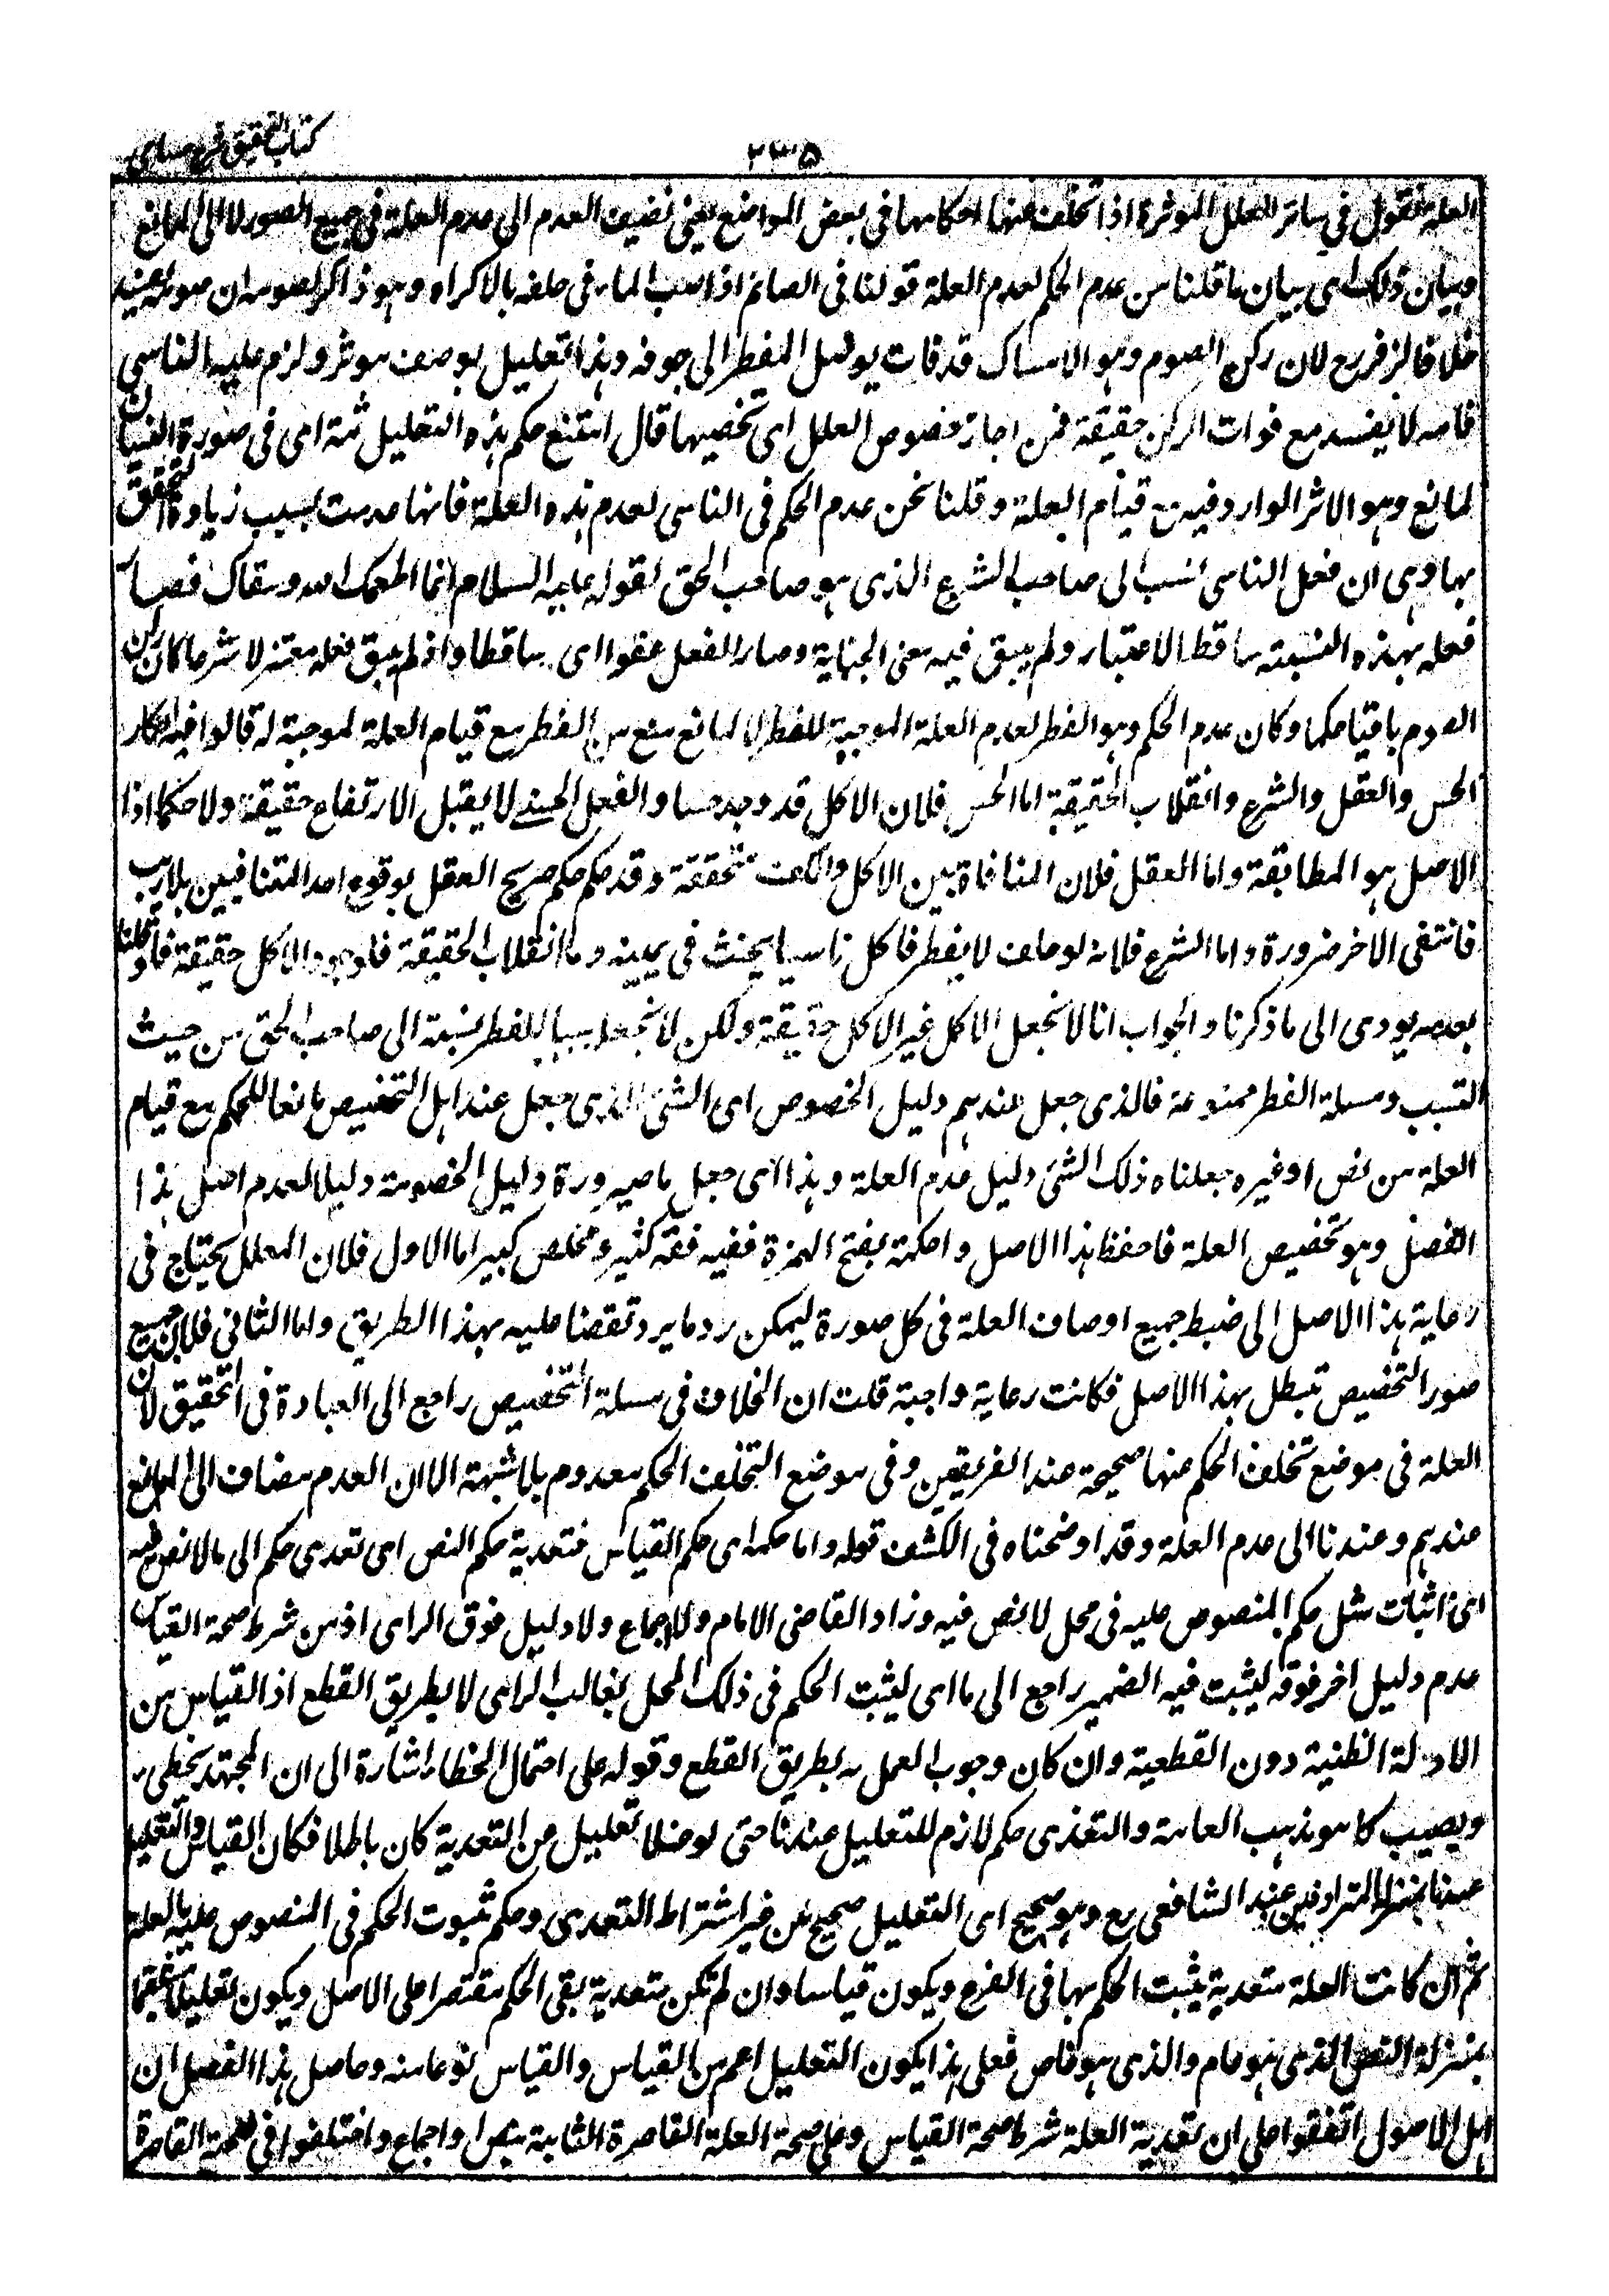 كتاب التحقيق شرح حسامى
٢٣٥
العلة نقول في سائر العلل الموثرة اذا تخلف عنها احكامها فى بعض المواضع يعنى نضيف العدم الى عدم العلة فى جميع الصور لا الى المانع
وبيان ذلك اى بيان ما قلنا من عدم الحكم لعدم العلة قولنا فى الصائم اذا صب الماء فى حلقه بالاكراه وهو ذاكر لصومه ان صومه
خلافا لزفر رح لان ركن الصوم وهو الامساك قد فات بوصول المفطر الى جوفه وهذا تعليل بوصف موثر ولزم عليه الناسى
لا يفسد مع فوات الركن حقيقة فمن اجاز خصوص العلل اى تخصيصها قال امتنع حكم هذه التعليل ثمة اى فى صورة النسيان
لمانع وهو الاثر الوارد فيه مع قيام العلة وقلنا نحن عدم الحكم فى الناسى لعدم هذه العلة فانها عدمت بسبب زيادة
بها وهى ان فعل الناسى نسب الى صاحب الشرع الذى هو صاحب الحق لقوله عليه السلام انما اطعمك الله وسقاك فصار
فعله بهذه النسبة ساقط الاعتبار ولم يبق فيه معنى الجناية وصار الفعل عفوا اى ساقطا واذا لم يبق فعله معتبرا شرعا كان ركن
الصوم باقيا حكما وكان عدم الحكم وهو الفطر لعدم العلة الموجبة للفطر لا لمانع منع من الفطر مع قيام العلة لموجبة له قالوا فيه انكار
الحس والعقل والشرع وانقلاب الحقيقة اما الحس فلان الاكل قد وجد حسا والفعل الحسى لا يقبل الارتفاع حقيقة ولا حكما اذا
الاصل هو المطابقة واما العقل فلان المنافاة بين الاكل والكف متحققة وقد حكم حكم صريح العقل بوقوع احد المتنافيين بلا ريب
فانتفى الاخر ضرورة واما الشرع فلانه لو حلف لا يفطر فاكل ناسيا يحنث فى يمينه وما انقلاب الحقيقة فلوجود الاكل حقيقة
بعدمه يودى الى ما ذكرنا والجواب انا لا نجعل الاكل غير الاكل حقيقة ولكن لا نجعله سببا للفطر لنسبته الى صاحب الحق من حيث
التسبب ومسلة الفطر ممنوعة فالذى جعل عندهم دليل الخصوص اى الشئ الذى جعل عند اهل التخصيص مانعا للحكم مع قيام
العلة من نص او غيره جعلناه ذلك الشئ دليل عدم العلة وهذا اى جعل ما صيروه دليل الخصوصة دليلا لعدم اصل هذا
الفصل وهو تخصيص العلة فاحفظ هذا الاصل واحكمه بفتح الهمزة ففيه فقه كثير ومخلص كبير اما الاول فلان المعلل يحتاج فى
رعاية هذا الاصل الى ضبط جميع اوصاف العلة فى كل صورة ليمكن رد ما يرد نقضا عليه بهذا الطريق واما الثانى فلان جميع
صور التخصيص تبطل بهذا الاصل فكانت رعاية واجبة قلت ان الخلاف فى مسلة التخصيص راجع الى العبادة فى التحقيق لان
العلة فى موضع تخلف الحكم عنها صحيحة عند الفريقين وفى موضع التخلف الحكم معدوم بلا شبهة الا ان العدم مضاف الى المانع
عندهم وعندنا الى عدم العلة وقد اوضحناه فى الكشف قوله واما حكمه اى حكم القياس فتعدية حكم النص اى تعدى حكم الى ما لا نص فيه
اى اثبات مثل حكم المنصوص عليه فى محل لا نص فيه وزاد القاضى الامام ولا اجماع ولا دليل فوق الراى اذ من شرط صحة القياس
عدم دليل اخر فوقه ليثبت فيه الضمير راجع الى ما اى ليثبت الحكم فى ذلك المحل بغالب الراى لا بطريق القطع اذ القياس من
الادلة الظنية دون القطعية وان كان وجوب العمل به بطريق القطع وقوله على احتمال الخطاء اشارة الى ان المجتهد يخطى
ويصيب كما هو مذهب العامة والتعدى حكم لازم للتعليل عندنا حتى لو خلا تعليل عن التعدية كان باطلا فكان القياس والتعليل
عندنا بمنزلة المترادفين عند الشافعى رح وهو صحيح اى التعليل صحيح من غير اشتراط التعدى وحكم ثبوت الحكم فى المنصوص عليه بالعلة
ثم ان كانت العلة متعدية يثبت الحكم بها فى الفرع ويكون قياسا وان لم تكن متعدية بقى الحكم مقتصرا على الاصل ويكون تعليلا مستقيما
بمنزلة النص الذى هو عام والذى هو خاص فعلى هذا يكون التعليل اعم من القياس والقياس نوعا منه وحاصل هذا الفصل ان
اهل الاصول اتفقوا على ان تعدية العلة شرط صحة القياس وعلى صحة العلة القاصرة الثابتة بنص او اجماع واختلفوا فى صحة القاصرة